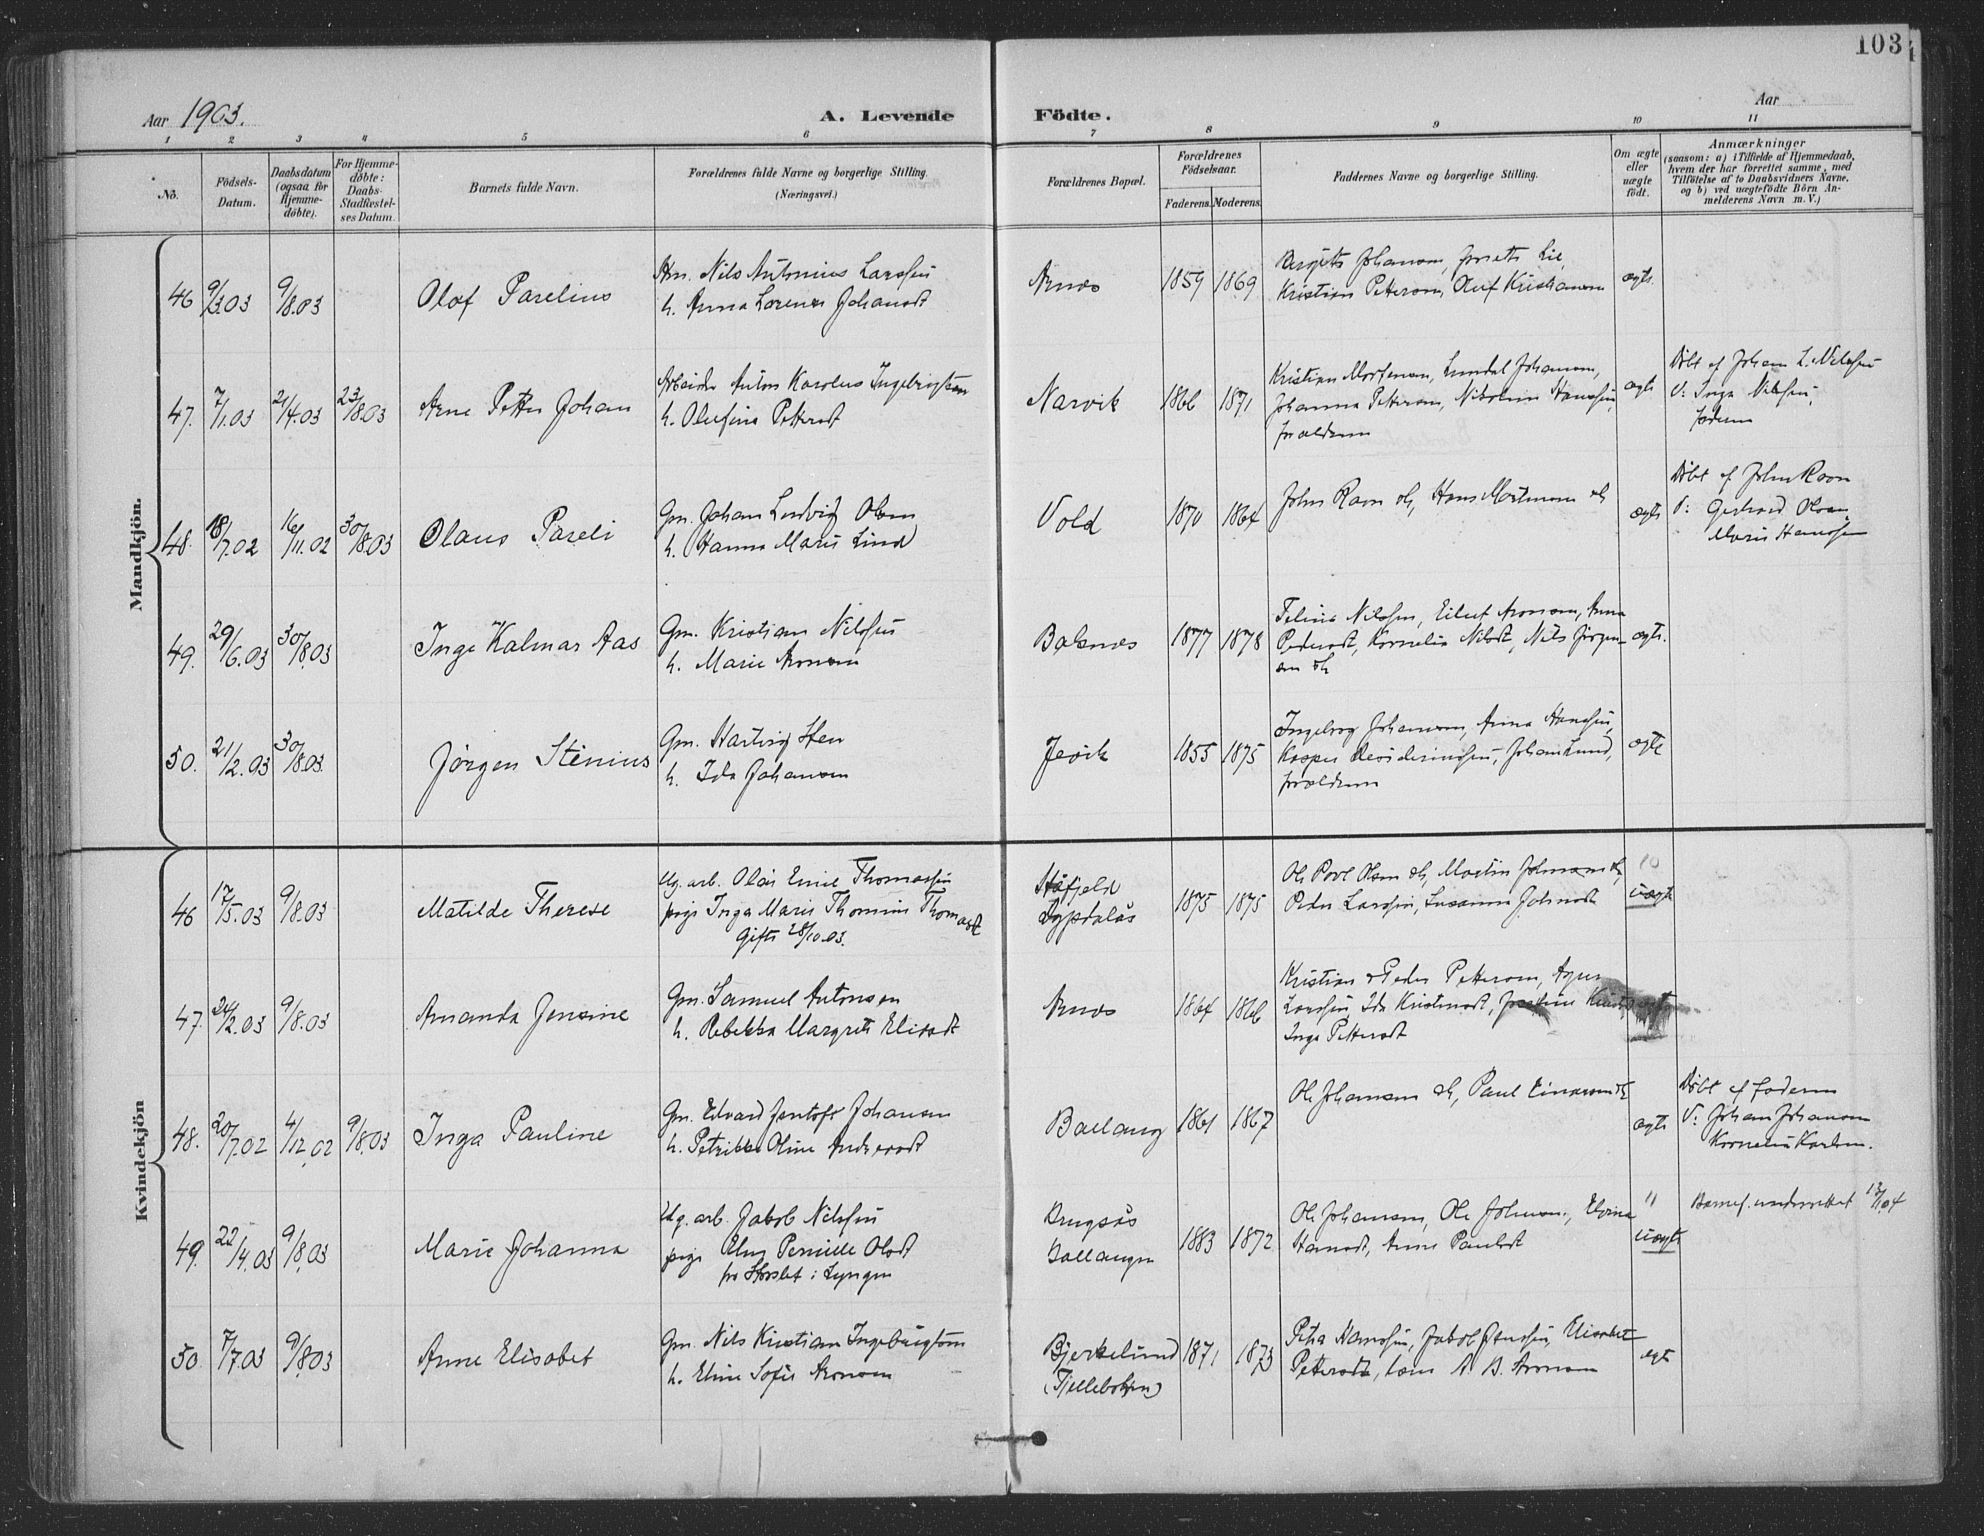 103
Aar 1903.
A. Levende Födte.
Aar
1 2 3 4 5 6 7 8 9 10 11
No.
Födsels-Datum.
Daabsdatum (ogsaa for Hjemme-döbte).
For Hjemme-döbte: Daabs-Stadfæstel-ses Datum.
Barnets fulde Navn.
Forældrenes fulde Navne og borgerlige Stilling.
(Næringsvei.)
Forældrenes Bopæl.
Forældrenes Födselsaar.
Faderens. Moderens.
Faddernes Navne og borgerlige Stilling.
Om ægte eller uægte född.
Anmærkninger
(saasom: a) i Tilfælde af Hjemmedaab,
hvem der har forrettet samme, med
Tilföielse af to Daabsvidners Navne.
og b) ved uægtefödte Börn An-
melderens Navn m. V.)
Mandkjön.
46 9/3.03 9/8.03 Olaf Parelius
Nils Antonius Larssen
h. Anna Lorenze Johansdt
Arnæs 1859 1869
Birgitte Johansen, Lie,
Kristian Pettersen, Oluf Kristiansen
ægte.
47. 7/1.03 21/4.03 23/8.03 Arne Petter Johan
Arbeider Anton Karolus Ingebrigtsen
h. Olufine Pettersdt
Narvik 1866 1871
Kristian Mortensen, Lundal Johansen,
Johanna Pettersen, Nikoline Hanssen,
forældrene
ægte
Döbt af Johan L. Nilssen
V: Inga Nilssen,
faderen
48. 18/7.02 16/11.02 30/8.03 Olaus Pareli
Gm. Johan Ludvig Olsen
h. Hanna Marie Lind
Vold 1870 1864
John Ravn oh, Hans Mortensen oh
ægte
Döbt af John Ravn
V: Gerhard Olsen
Marie Hanssen
49. 29/6.03 30/8.03 Inge Kalmar Aas
Gm. Kristian Nilssen
h. Marie Aronsen
Balsnes 1877 1878
Nilssen, Eilert Aronsen, Anna
Pedersdt, Kornelia Nilsdt, Nils Jörgen-
sen oh
ægte.
50. 21/2.03 30/8.03 Jörgen Sténius
Gm. Hartvig Sten
h. Ida Johansen
Jevik 1855 1875
Ingeborg Johansen, Anna Hanssen,
Kasper Desideriussen, Johan Lund,
forældrene
ægte
Kvindekjön
46 17/5.03 9/8.03 Matilde Therese
Ug. arb. Olai Emil Thomassen
pige Inga Marie Thomine Thomasdt
Gifte 28/10.03.
Dypdalås 1875 1875
Ole Povl Olsen oh, Martin Johansen oh,
Peder Larssen, Susanna Johnsdt
10
uægte
47. 24/2.03 9/8.03 Amanda Jensine
Gm. Samuel Antonsen
h. Rebekka Margrete Elisadt
Arnæs 1864 1866
Kristian & Peder Pettersen,
Larssen, Ida Kristensdt,
Inga Pettersdt
ægte
48. 20/7.02 4/12.02 9/8.03 Inga Pauline
Gm. Edvard Jentoft Johansen
h. Petrikke Oline Andersdt
Ballang 1861 1867
Ole Johansen oh, Paul Einarsen oh
ægte
Döbt af faderen
V: Johan Johansen
Kornelius Karlsen.
49. 22/4.03 9/8.03 Marie Johanna
Ug. arb. Jakob Nilssen
pige Elen Pernille Olsdt
fra Storslet i Lyngen
Ballangen 1883 1872
Ole Johansen, Ole Johnsen,
Hansdt, Anne Paulsdt
"
uægte
Barnef. underrettet 12/1.04
50 7/7.03 9/8.03 Anne Elisabet
Gm. Nils Kristian Ingebrigtsen
h. Eline Sofie Aronsen
Bjerkelund 1871 1873
(Fjellebotn)
Petra Hanssen, Jakob Jenssen, Elisabet
Pettersdt, A. B. Aronsen
ægte